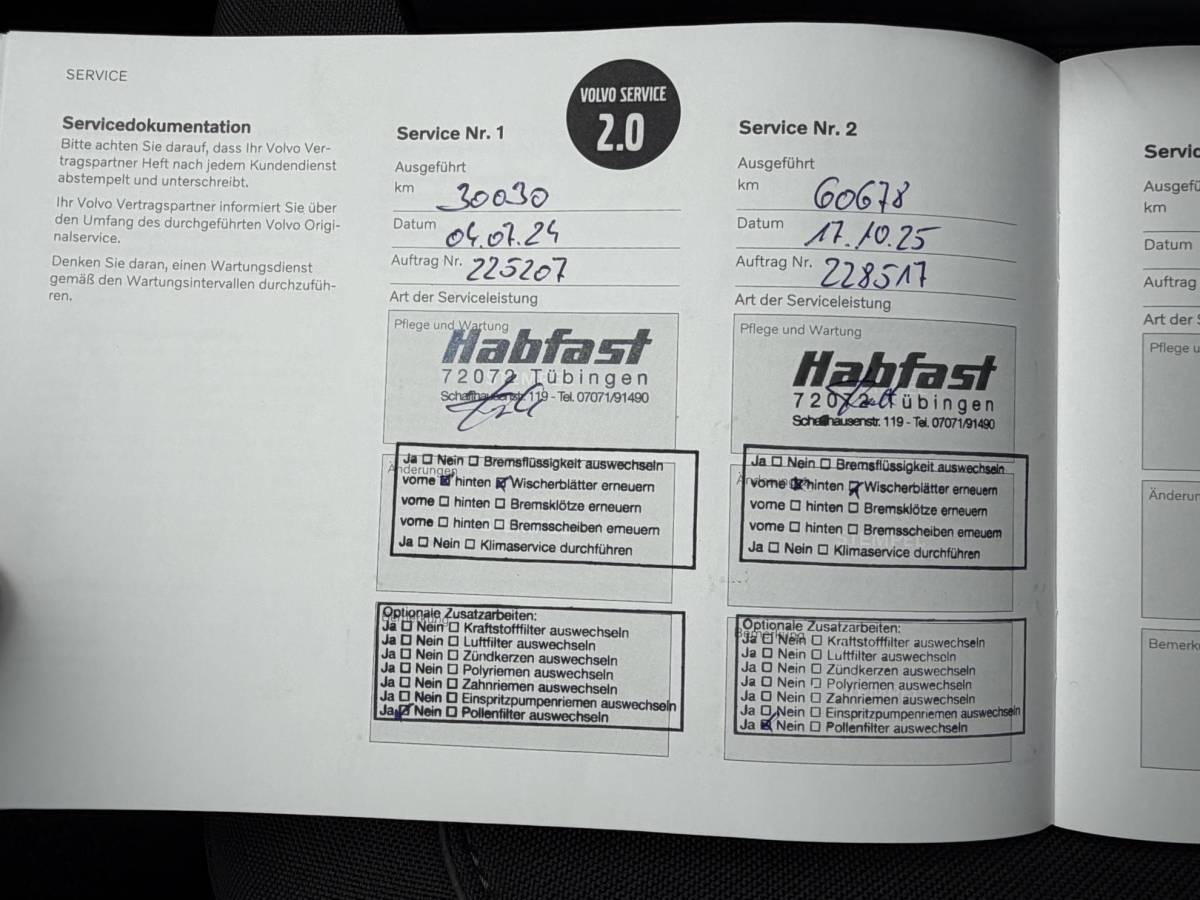 SERVICE
Servicedokumentation
Bitte achten Sie darauf, dass Ihr Volvo Ver-
tragspartner Heft nach jedem Kundendienst
abstempelt und unterschreibt.
Ihr Volvo Vertragspartner informiert Sie über
den Umfang des durchgeführten Volvo Origi-
nalservice.
Denken Sie daran, einen Wartungsdienst
gemäß den Wartungsintervallen durchzufüh-
ren.
VOLVO SERVICE
2.0
Service Nr. 1
Ausgeführt
km 30030
Datum 04.07.24
Auftrag Nr. 225207
Art der Serviceleistung
Pflege und Wartung
Habfast
72072 Tübingen
Schaffhausenstr. 119 - Tel. 07071/91490
Änderungen
Ja ☐ Nein ☐ Bremsflüssigkeit auswechseln
vorne ☒ hinten ☒ Wischerblätter erneuern
vorne ☐ hinten ☐ Bremsklötze erneuern
vorne ☐ hinten ☐ Bremsscheiben erneuern
Ja ☐ Nein ☐ Klimaservice durchführen
Optionale Zusatzarbeiten:
Bemerkung
Ja ☐ Nein ☐ Kraftstofffilter auswechseln
Ja ☐ Nein ☐ Luftfilter auswechseln
Ja ☐ Nein ☐ Zündkerzen auswechseln
Ja ☐ Nein ☐ Polyriemen auswechseln
Ja ☐ Nein ☐ Zahnriemen auswechseln
Ja ☐ Nein ☐ Einspritzpumpenriemen auswechseln
Ja ☒ Nein ☐ Pollenfilter auswechseln
Service Nr. 2
Ausgeführt
km 60678
Datum 17.10.25
Auftrag Nr. 228517
Art der Serviceleistung
Pflege und Wartung
Habfast
72072 Tübingen
Schaffhausenstr. 119 - Tel. 07071/91490
Änderungen
Ja ☐ Nein ☐ Bremsflüssigkeit auswechseln
vorne ☒ hinten ☒ Wischerblätter erneuern
vorne ☐ hinten ☐ Bremsklötze erneuern
vorne ☐ hinten ☐ Bremsscheiben erneuern
STEMPEL
Ja ☐ Nein ☐ Klimaservice durchführen
Optionale Zusatzarbeiten:
Bemerkung
Ja ☐ Nein ☐ Kraftstofffilter auswechseln
Ja ☐ Nein ☐ Luftfilter auswechseln
Ja ☐ Nein ☐ Zündkerzen auswechseln
Ja ☐ Nein ☐ Polyriemen auswechseln
Ja ☐ Nein ☐ Zahnriemen auswechseln
Ja ☐ Nein ☐ Einspritzpumpenriemen auswechseln
Ja ☒ Nein ☐ Pollenfilter auswechseln
Servic
Ausgefü
km
Datum
Auftrag
Art der S
Pflege u
Änderun
Bemerku